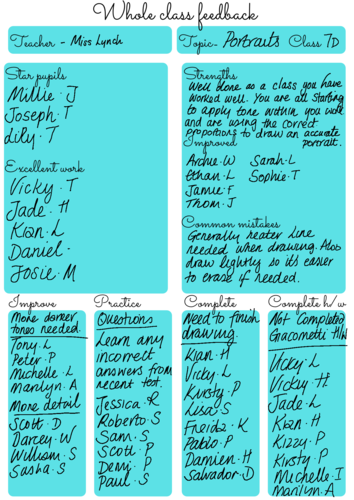 Whole class feedback
Teacher - Miss Lynch
Topic- Portraits Class 7D
Star pupils
Millie · J
Joseph · T
Lily · T
Excellent work
Vicky · T
Jade · H
Kian · L
Daniel ·
Josie · M
Strengths
Well done as a class you have
worked well. You are all starting
to apply tone within you work
and are using the correct
proportions to draw an accurate
portrait.
Improved
Archie · W Sarah · L
Ethan · L Sophie · T
Jamie · F
Thom · J
Common mistakes
Generally neater line
needed when drawing. Also
draw lightly so its easier
to erase if needed.
Improve
More darker
tones needed.
Tony · L
Peter · P
Michelle · L
Marilyn · A
More detail
Scott · D
Darcey · W
William · S
Sasha · S
Practice
Questions
Learn any
incorrect
answers from
recent test.
Jessica · R
Roberto · S
Sam · S
Scott · P
Demi · P
Paul · S
Complete
Need to finish
drawing
Kian · H
Vicky · L
Kirsty · P
Lisa · S
Freida · K
Pablo · P
Damien · H
Salvador · D
Complete h/w
Not Completed
Giacometti H/W
Vicky · L
Vicky · H
Jade · L
Kian · H
Kizzy · P
Kirsty · P
Michelle · I
Marilyn · A